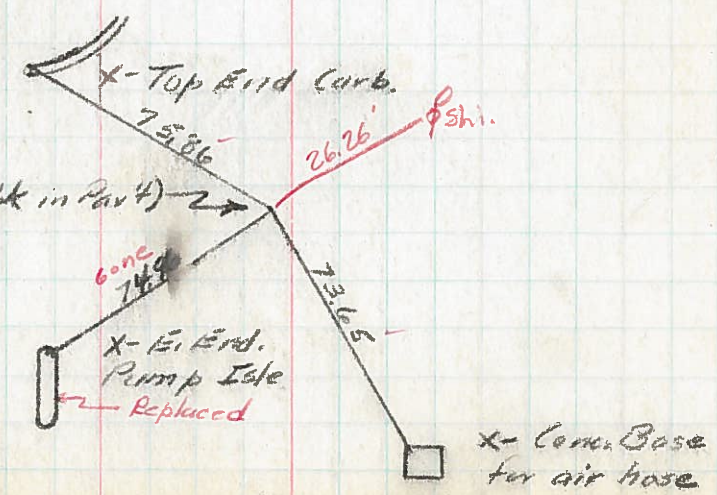 x- Top End Curb.
75.86
26.26'
shi.
in Pav't)
Gone
73.65
x- E. End.
Pump Isle
Replaced
x- Conc. Base
for air hose